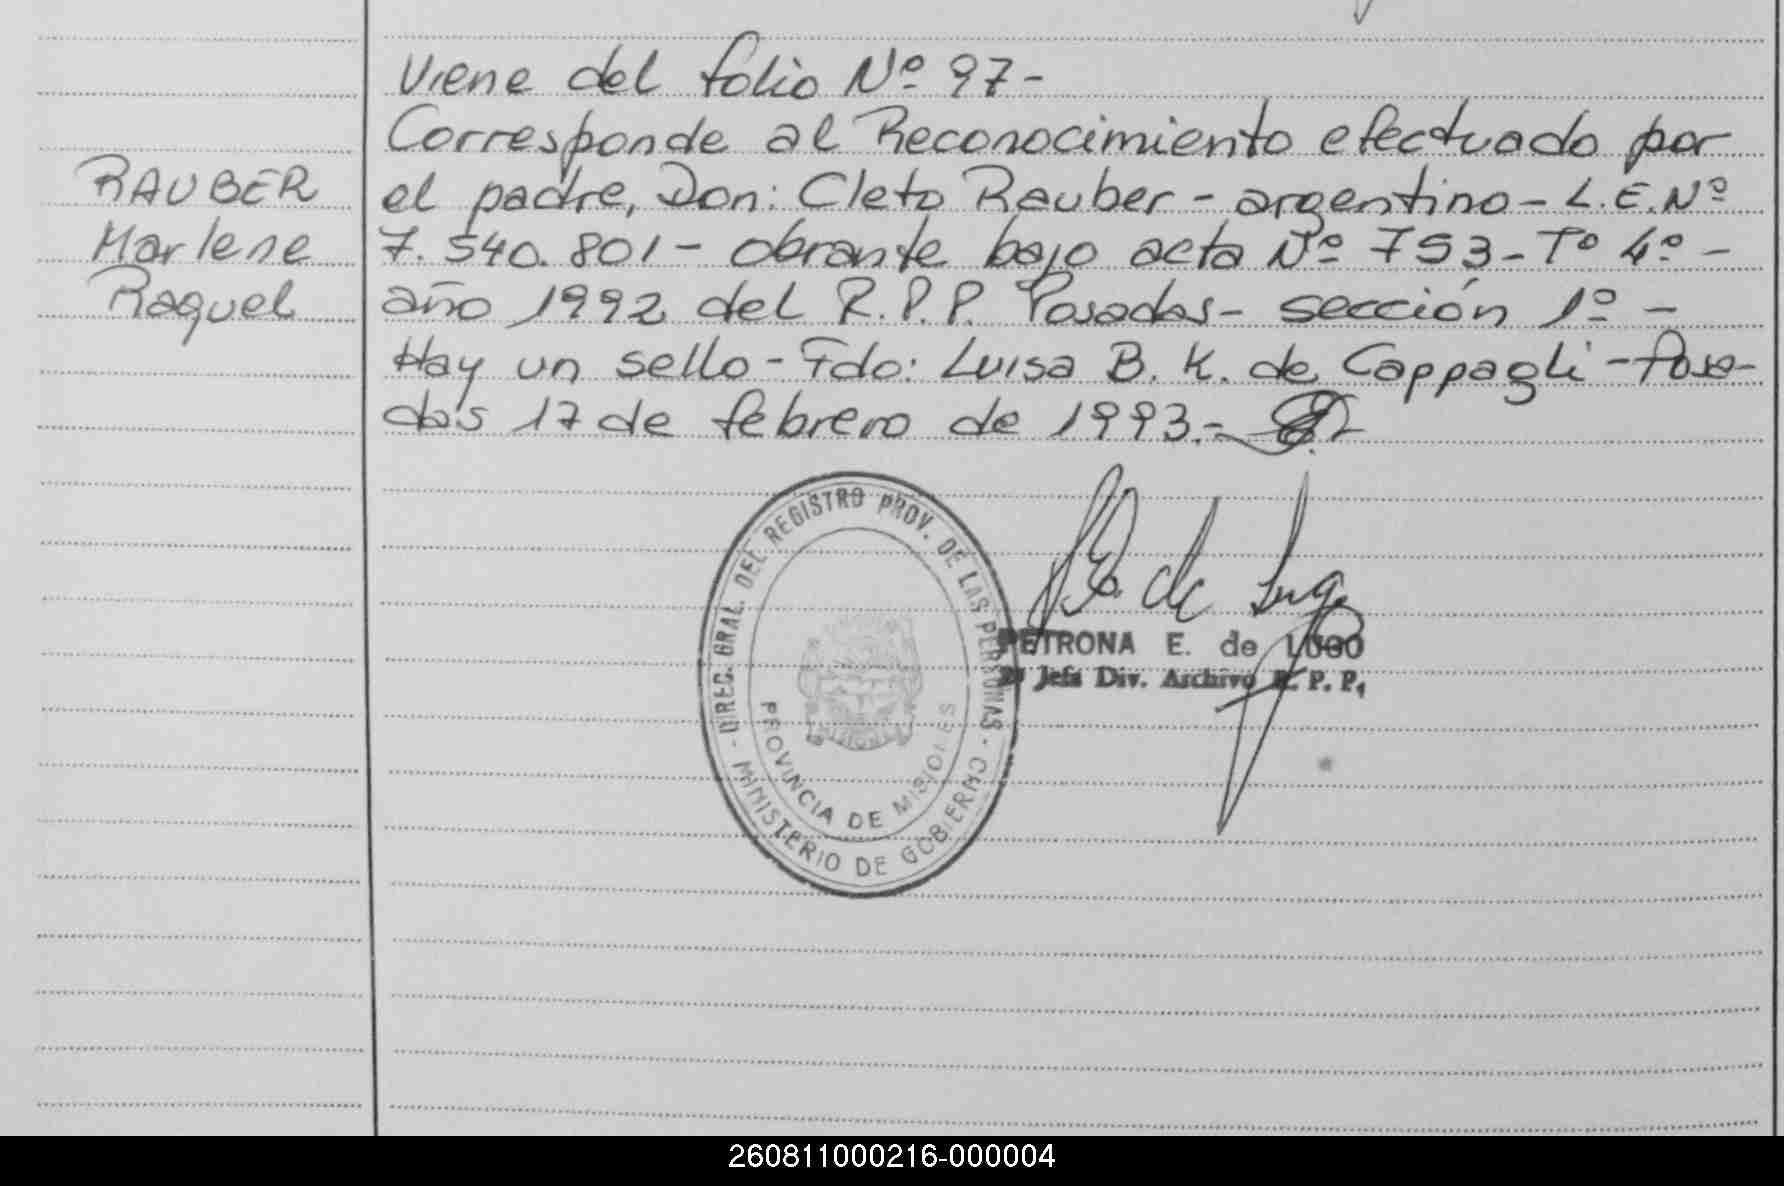 Viene del folio Nº 97-
Corresponde al Reconocimiento efectuado por
RAUBER
el padre, Don: Cleto Rauber - argentino - L.E.Nº
Marlene
7.540.801 - obrante bajo acta Nº 753 - Tº 4º -
Raquel
año 1992 del R.P.P. Posadas - sección 1º -
Hay un sello - Fdo: Luisa B. K. de Cappagli - Posa-
das 17 de febrero de 1993.-
DIREC. GRAL. DEL REGISTRO PROV. DE LAS PERSONAS -
MINISTERIO DE GOBIERNO
PROVINCIA DE MISIONES
PETRONA E. de LUGO
Jefa Div. Archivo R. P. P.
260811000216-000004